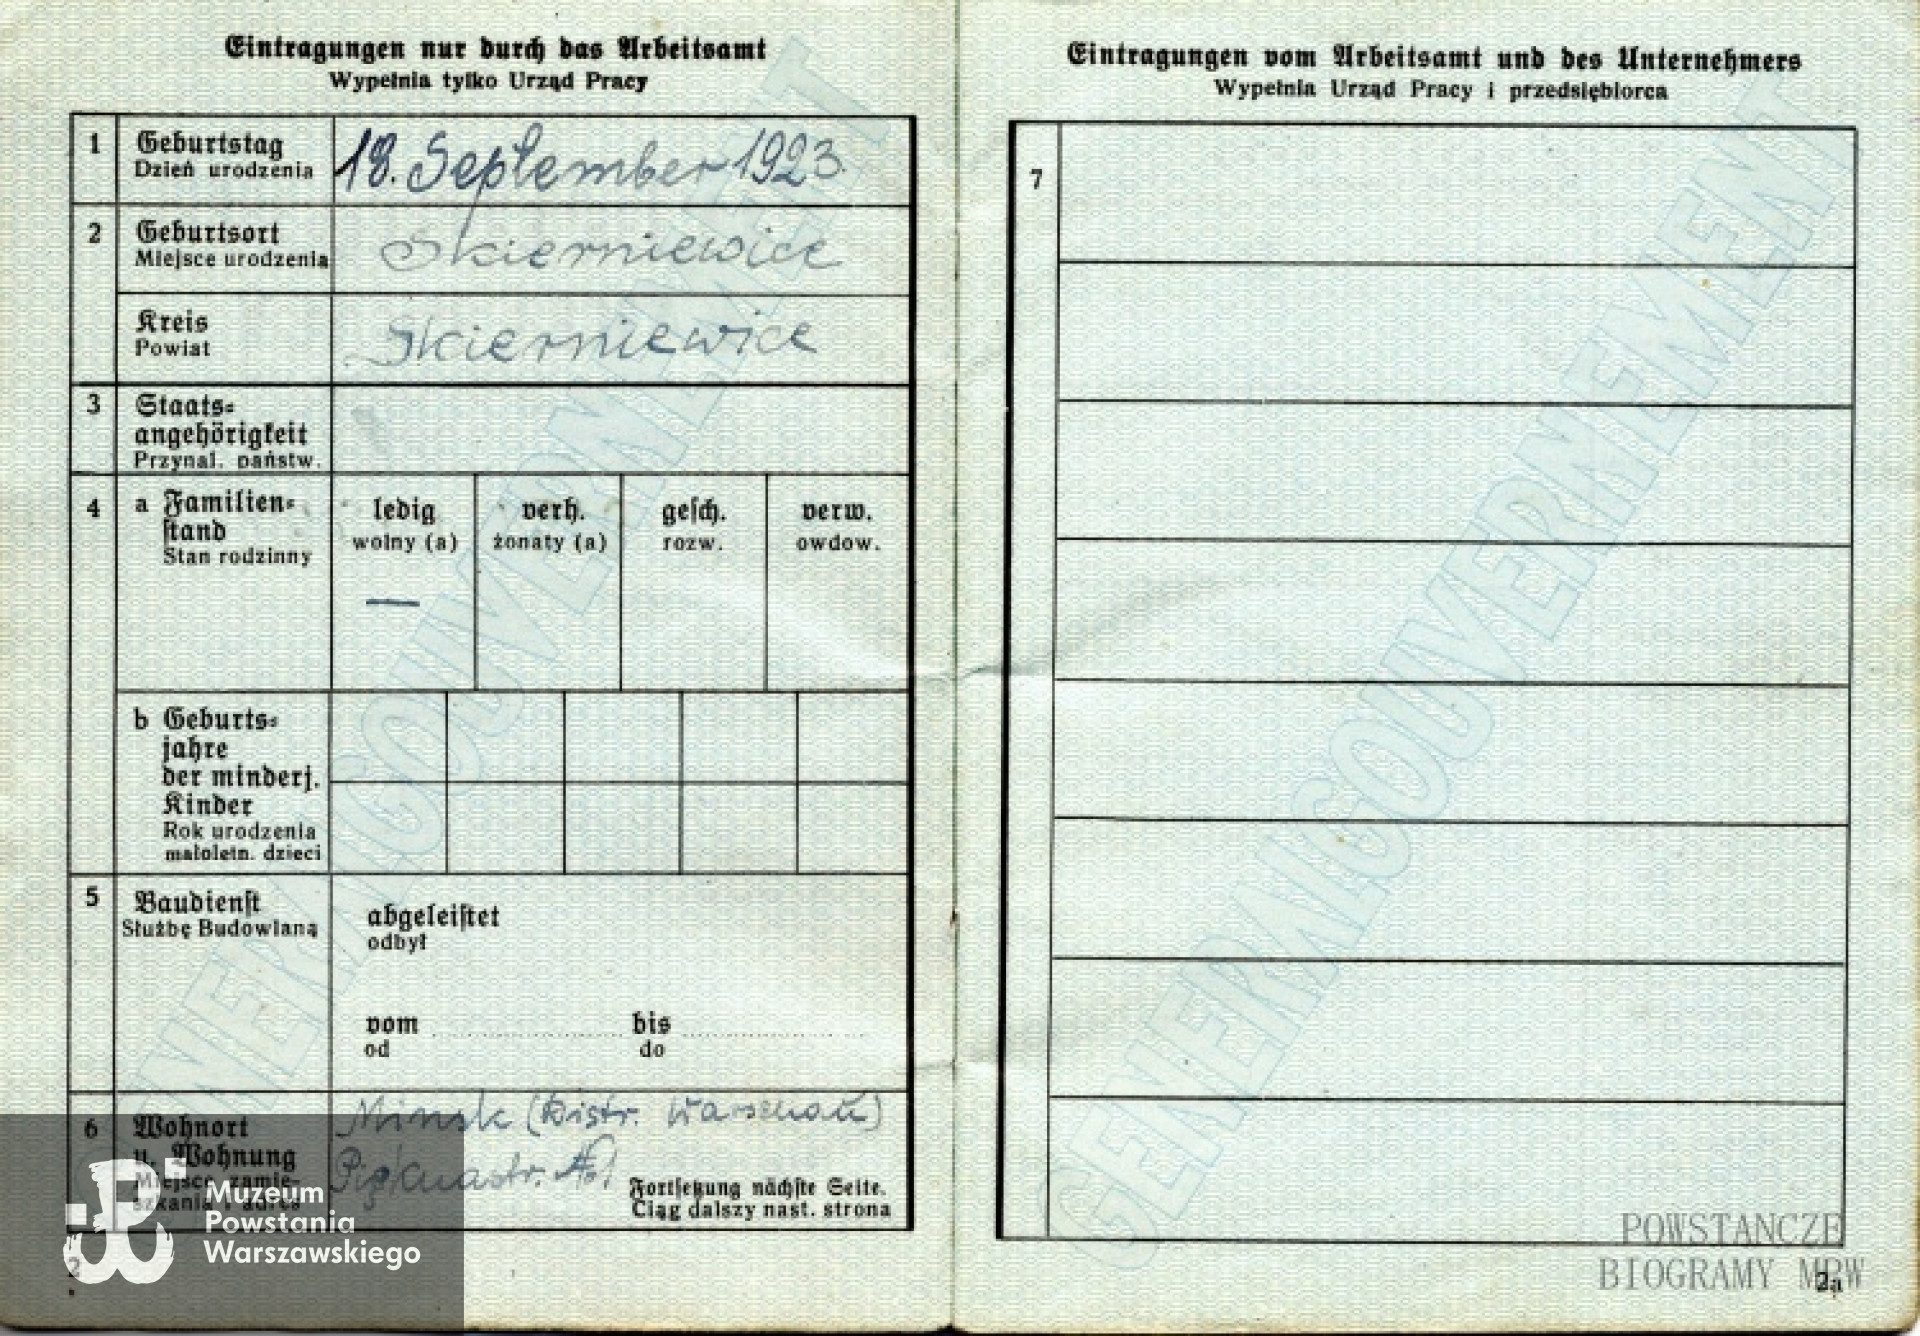 Eintragungen nur durch das Arbeitsamt
Wypełnia tylko Urząd Pracy
1
Geburtstag
Dzień urodzenia
18. September 1923.
2
Geburtsort
Miejsce urodzenia
Skierniewice
Kreis
Powiat
Skierniewice
3
Staats=
angehörigkeit
Przynal. państw.
4
a Familien=
stand
Stan rodzinny
ledig
wolny (a)
—
verh.
żonaty (a)
gesch.
rozw.
verw.
owdow.
b Geburts=
jahre
der minderj.
Kinder
Rok urodzenia
małoletn. dzieci
5
Baudienst
Służbę Budowlaną
abgeleistet
odbył
vom
od
bis
do
6
Wohnort
u. Wohnung
Miejsce zamie-
szkania i adres
Minsk (Distr. Warschau)
Pięknastr. No 1
Fortsetzung nächste Seite.
Ciąg dalszy nast. strona
2
GENERALGOUVERNEMENT
Muzeum
Powstania
Warszawskiego
Eintragungen vom Arbeitsamt und des Unternehmers
Wypełnia Urząd Pracy i przedsiębiorca
7
GENERALGOUVERNEMENT
POWSTANCZE
BIOGRAMY MPW
2a